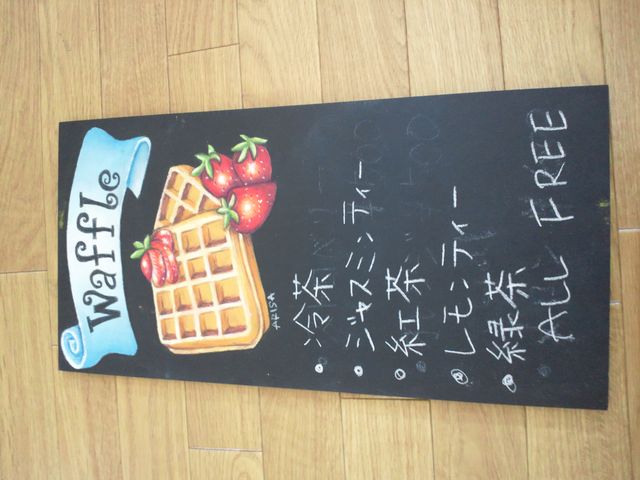 Waffle
ARISA
・冷茶
・ジャスミンティー
・紅茶
・レモンティー
・緑茶
・ALL FREE